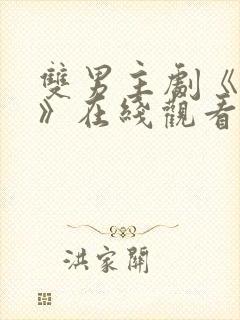 雙男主劇《
》在綫觀看
洪家關